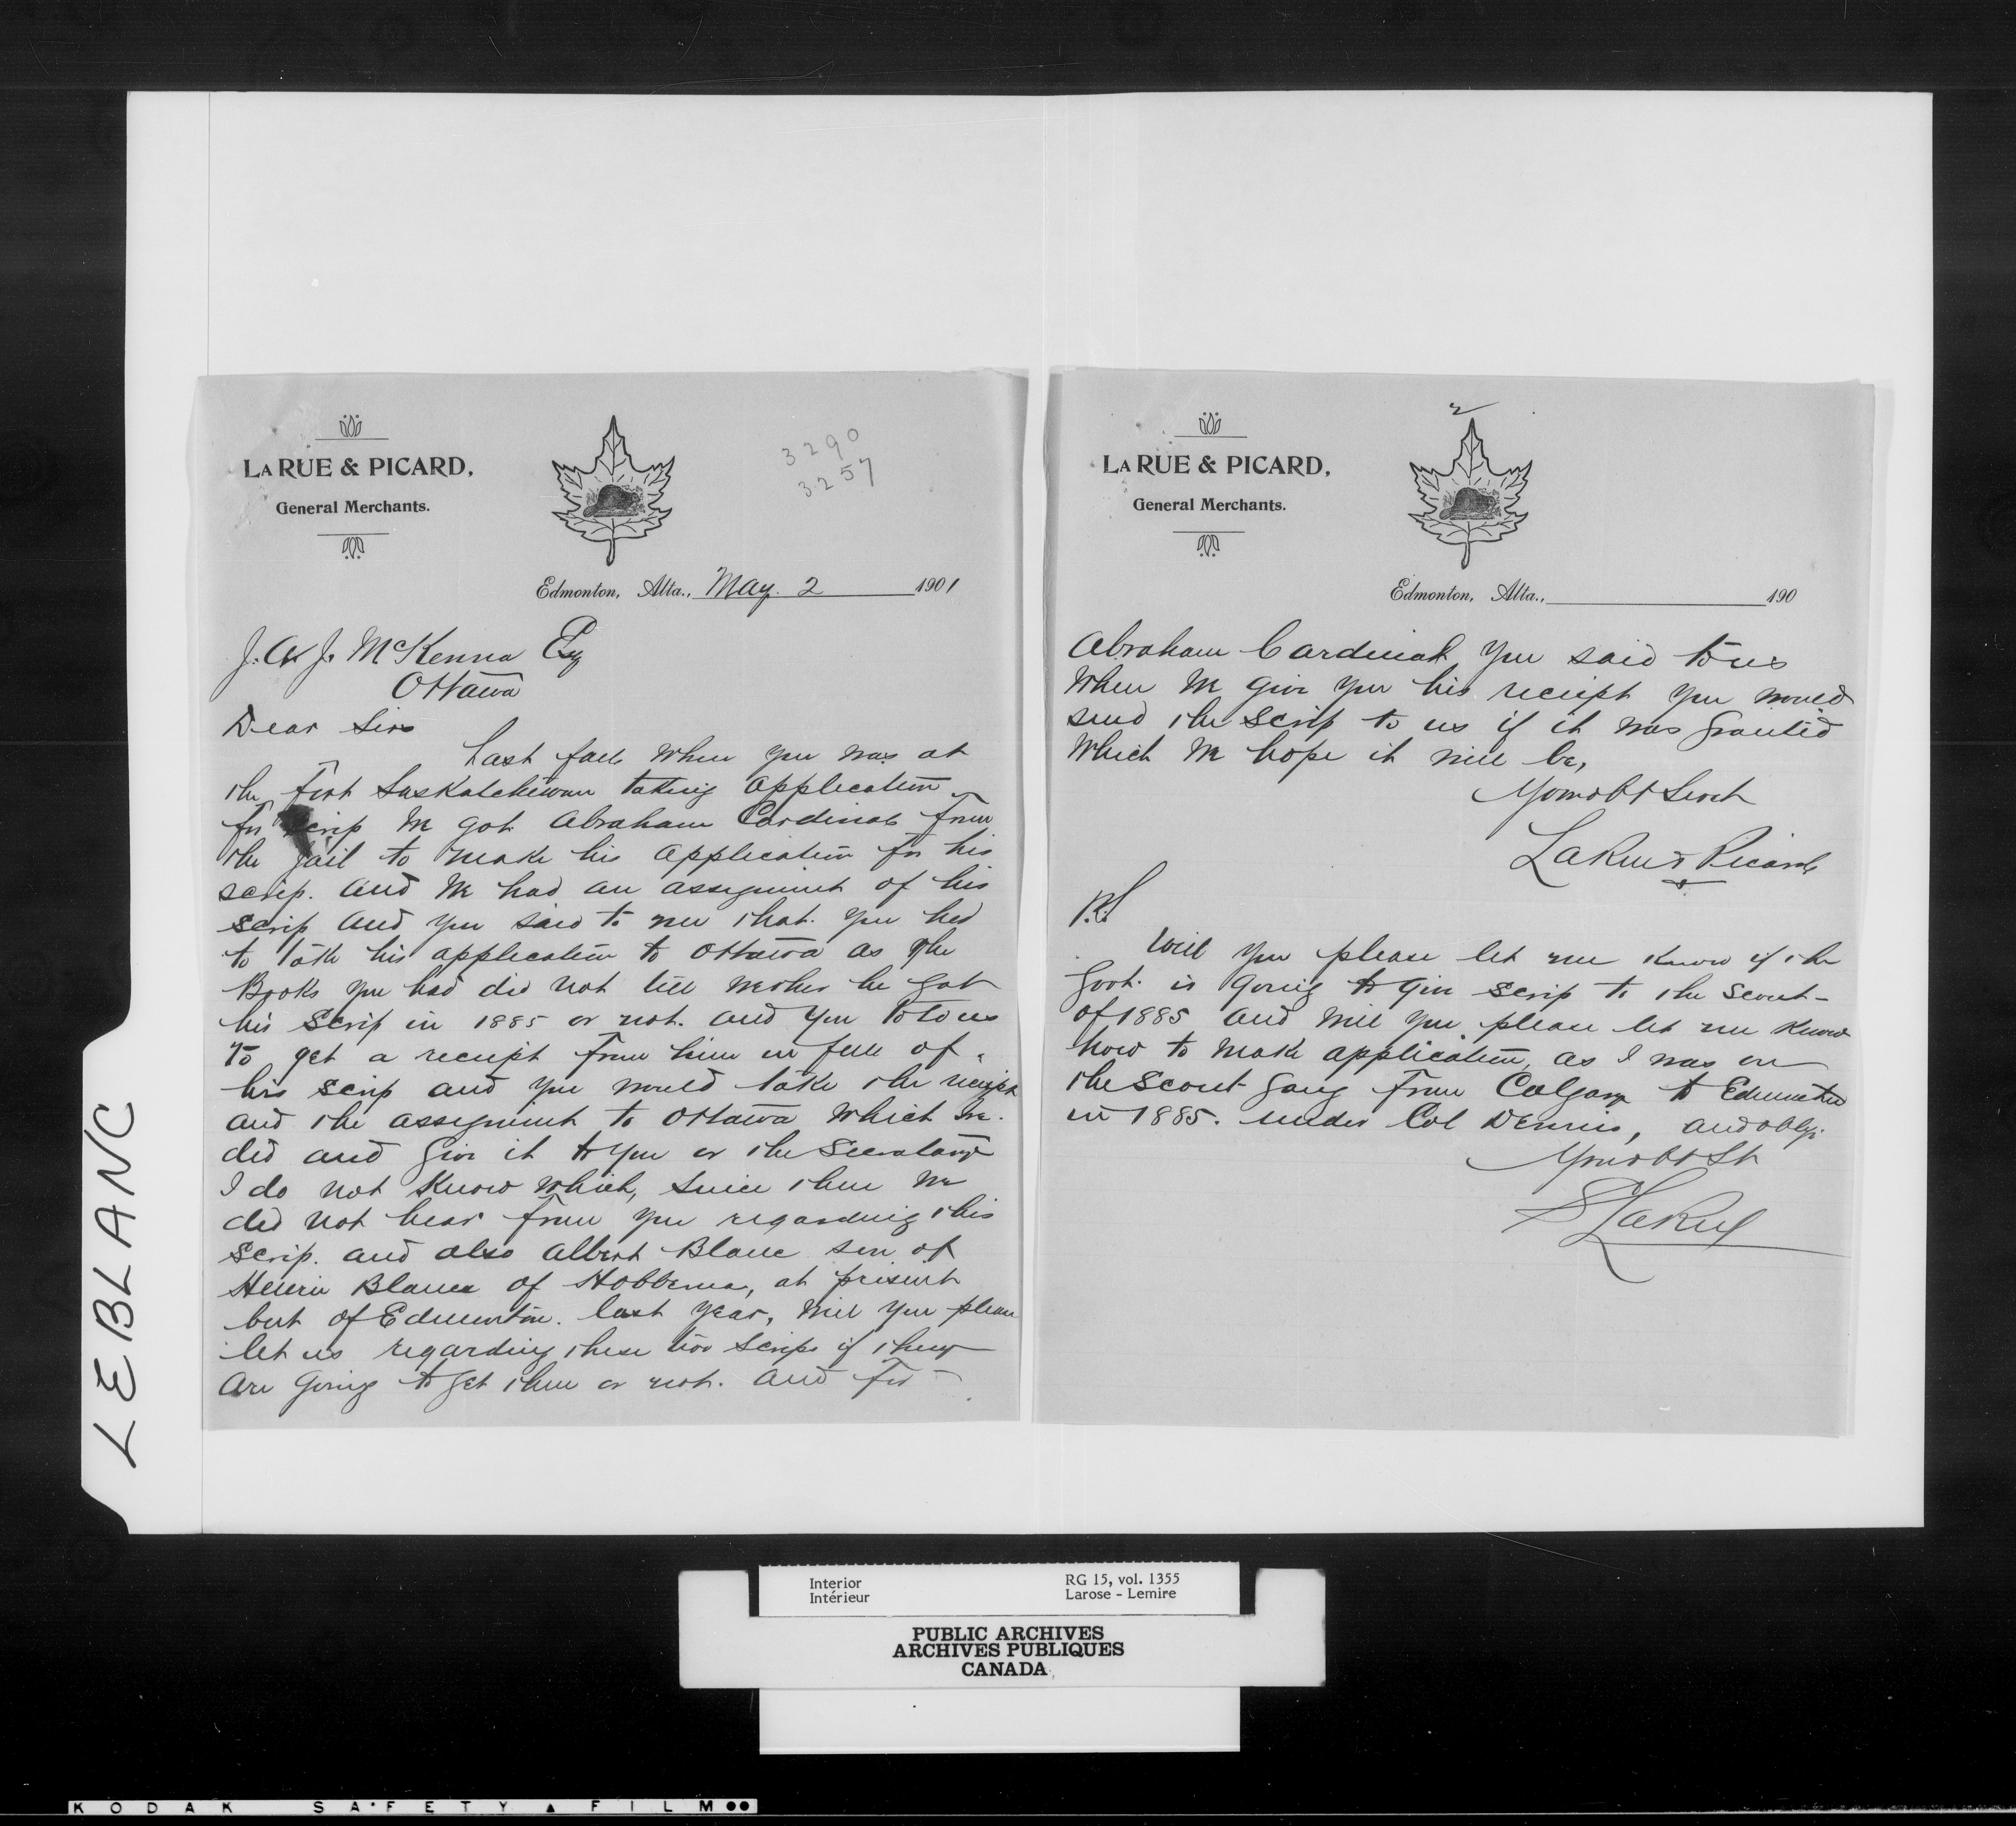 LA RUE & PICARD,
General Merchants.
3290
3257
Edmonton, Alta., May. 2 1901
J. A. J. McKenna Esq
Ottawa
Dear Sir
Last fall when you was at
the Fort Saskatchewan taking application
for scrip we got Abraham Cardinal from
the jail to make his application for his
scrip. and we had an assignment of his
scrip and you said to me that. you had
to take his application to Ottawa as the
Books you had did not tell wether he got
his scrip in 1885 or not. and you told us
to get a receipt from him in full of
his scrip and you would take the receipt
and the assignment to Ottawa which we.
did and give it to you or the Secretary
I do not know which, since then we
did not hear from you regarding this
scrip. and also Albert Blanc son of
Blanc of Hobbema, at present
but of Edmonton. last year, will you please
let us regarding these two scrips if they
are going to get them or not. and for
2
LA RUE & PICARD,
General Merchants.
Edmonton, Alta., 190
Abraham Cardinal you said to us
when we give you his receipt you would
send the scrip to us if it was granted
which we hope it will be,
Your obt Servt
LaRue & Picard
P.S
Will you please let me know if the
Govt. is going to give scrip to the scout-
of 1885 and will you please let me know
how to make application, as I was on
the scout gang from Calgary to Edmonton
in 1885. under Col Dennis, and oblg.
Your obt St
S LaRue
LEBLANC
Interior
Intérieur
RG 15, vol. 1355
Larose - Lemire
PUBLIC ARCHIVES
ARCHIVES PUBLIQUES
CANADA
KODAK SAFETY FILM